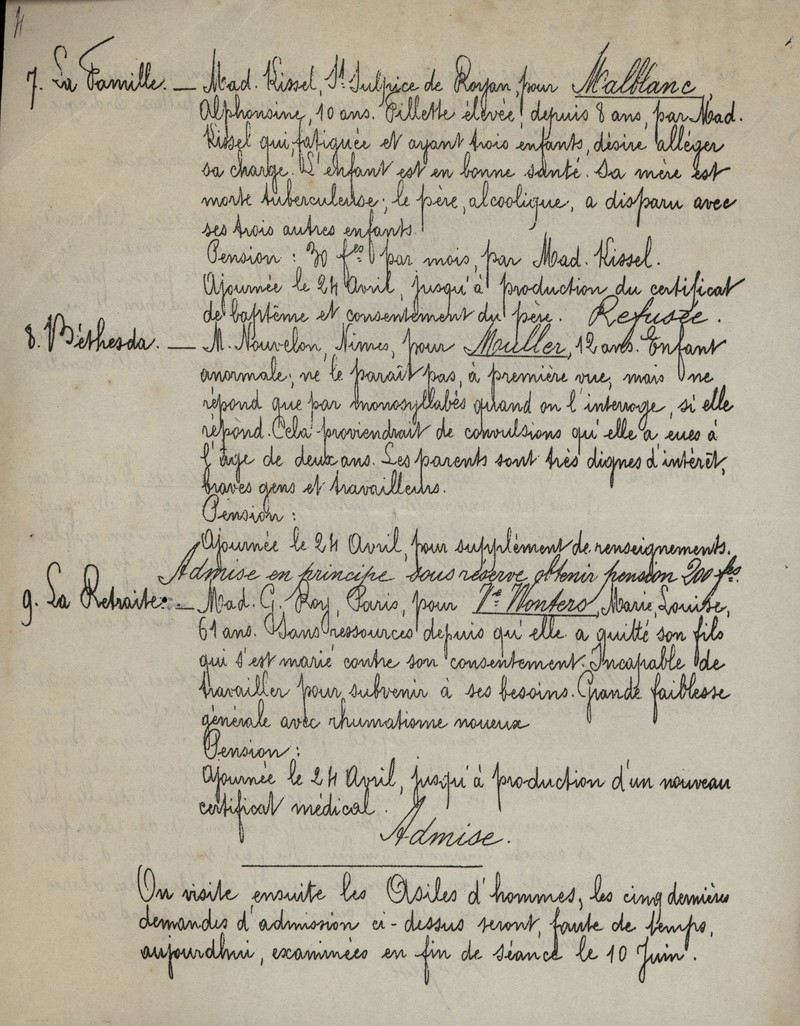 4
7. La Famille. — Mad. Kissel, St. Sulpice de Royan, pour Malblanc,
Alphonsine, 10 ans. Fillette élevée, depuis 8 ans, par Mad.
Kissel qui, fatiguée et ayant trois enfants, désire alléger
sa charge. L'enfant est en bonne santé. Sa mère est
morte tuberculeuse; le père, alcoolique, a disparu avec
ses trois autres enfants.
Pension : 30 fcs par mois, par Mad. Kissel.
Ajournée le 24 Avril, jusqu'à production du certificat
de baptême et consentement du père. Refusée.
8. Béthesda. — M. Nouvelon, Nîmes, pour Muller, 12 ans. Enfant
anormale; ne le paraît pas, à première vue, mais ne
répond que par monosyllabes quand on l'interroge, si elle
répond. Cela proviendrait de convulsions qu'elle a eues à
l'âge de deux ans. Les parents sont très dignes d'intérêt,
braves gens et travailleurs.
Pension :
Ajournée le 24 Avril, pour supplément de renseignements.
Admise en principe sous réserve obtenir pension 200 fcs.
9. La Retraite. — Mad. G. Roy, Paris, pour Ve Wonters, Marie, Louise,
61 ans. Sans ressources depuis qu'elle a quitté son fils
qui s'est marié contre son consentement. Incapable de
travailler pour subvenir à ses besoins. Grande faiblesse
générale avec rhumatisme noueux
Pension :
Ajournée le 24 Avril, jusqu'à production d'un nouveau
certificat médical.
Admise.
On visite ensuite les Asiles d'hommes, les cinq dernières
demandes d'admission ci-dessus seront, faute de temps,
aujourdhui, examinées en fin de séance le 10 Juin.